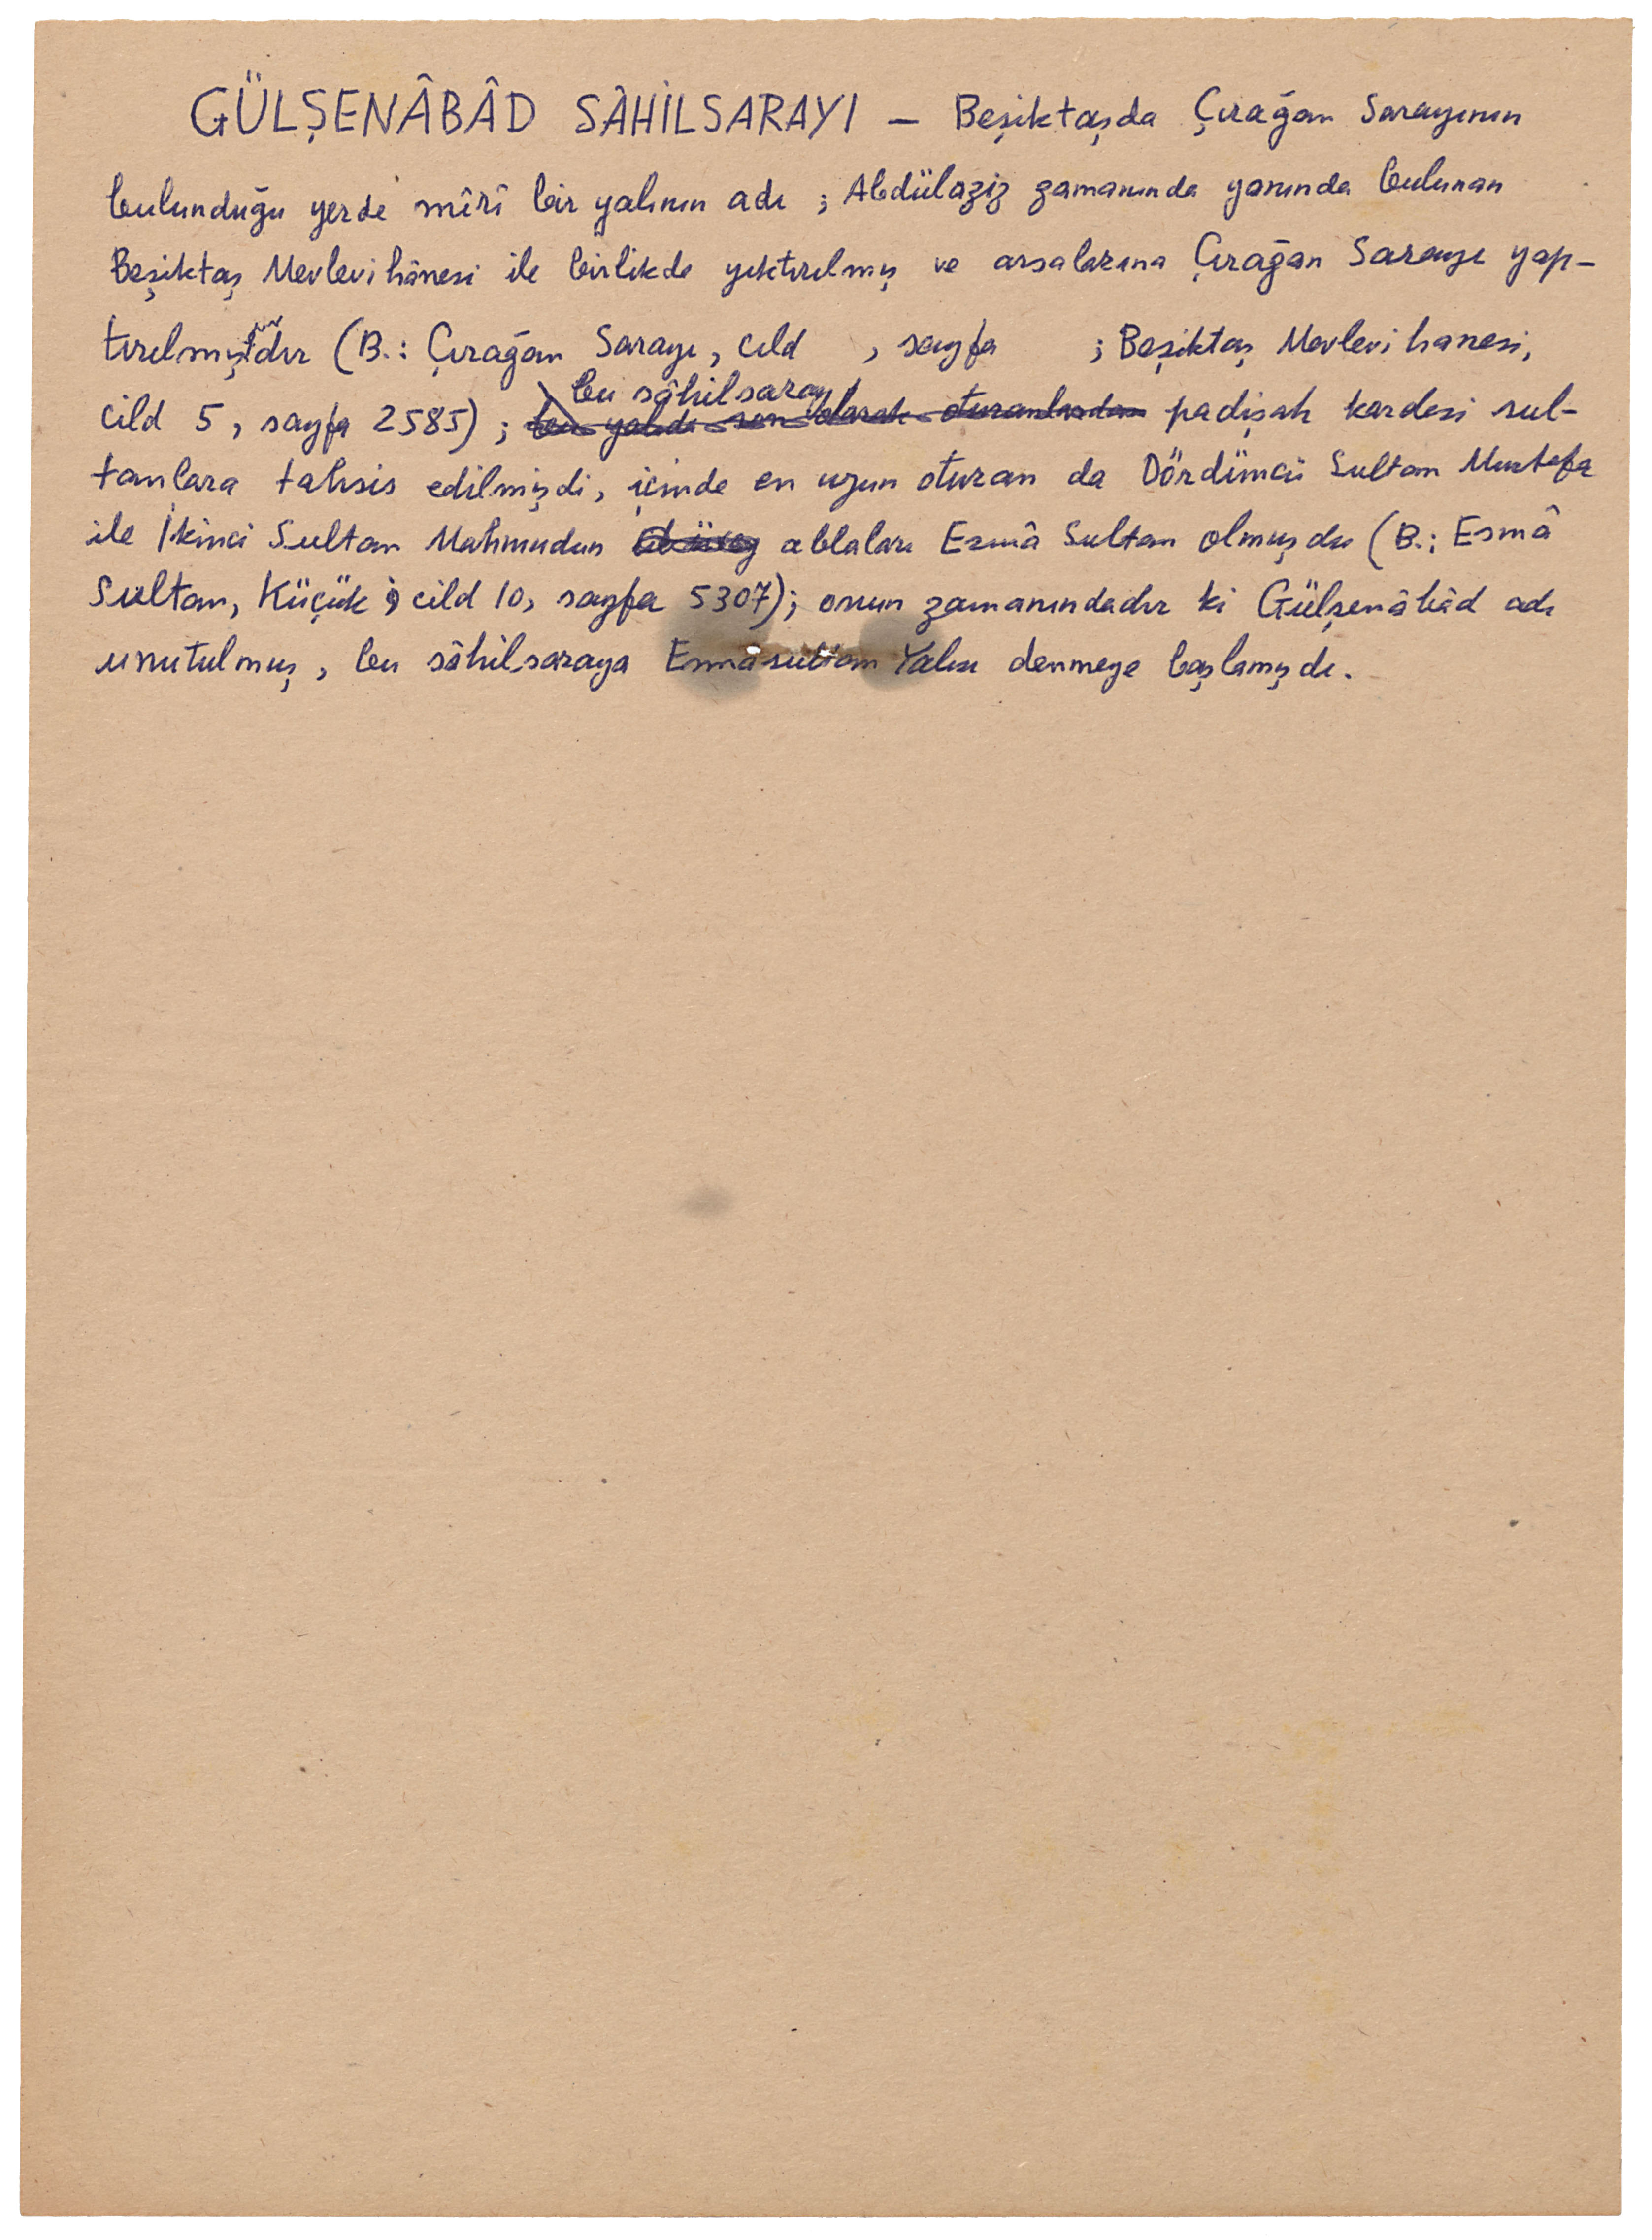 GÜLŞENÂBÂD SÂHİLSARAYI — Beşiktaşda Çırağan Sarayının
bulunduğu yerde mîrî bir yalının adı ; Abdülaziz zamanında yanında bulunan
Beşiktaş Mevlevihânesi ile birlikde yıktırılmış ve arsalarına Çırağan Sarayı yap-
tırılmışdır (B.: Çırağan Sarayı, cild , sayfa ; Beşiktaş Mevlevihanesi,
bu sâhilsaray
cild 5, sayfa 2585) ; bu yalıda son olarak oturanlardan padişah kardeşi sul-
tanlara tahsis edilmişdi, içinde en uzun oturan da Dördüncü Sultan Mustafa
ile İkinci Sultan Mahmudun ablaları Esmâ Sultan olmuşdu (B.: Esmâ
Sultan, Küçük ; cild 10, sayfa 5307); onun zamanındadır ki Gülşenâbâd adı
unutulmuş, bu sâhilsaraya Esmâsultan Yalısı denmeye başlamışdı.